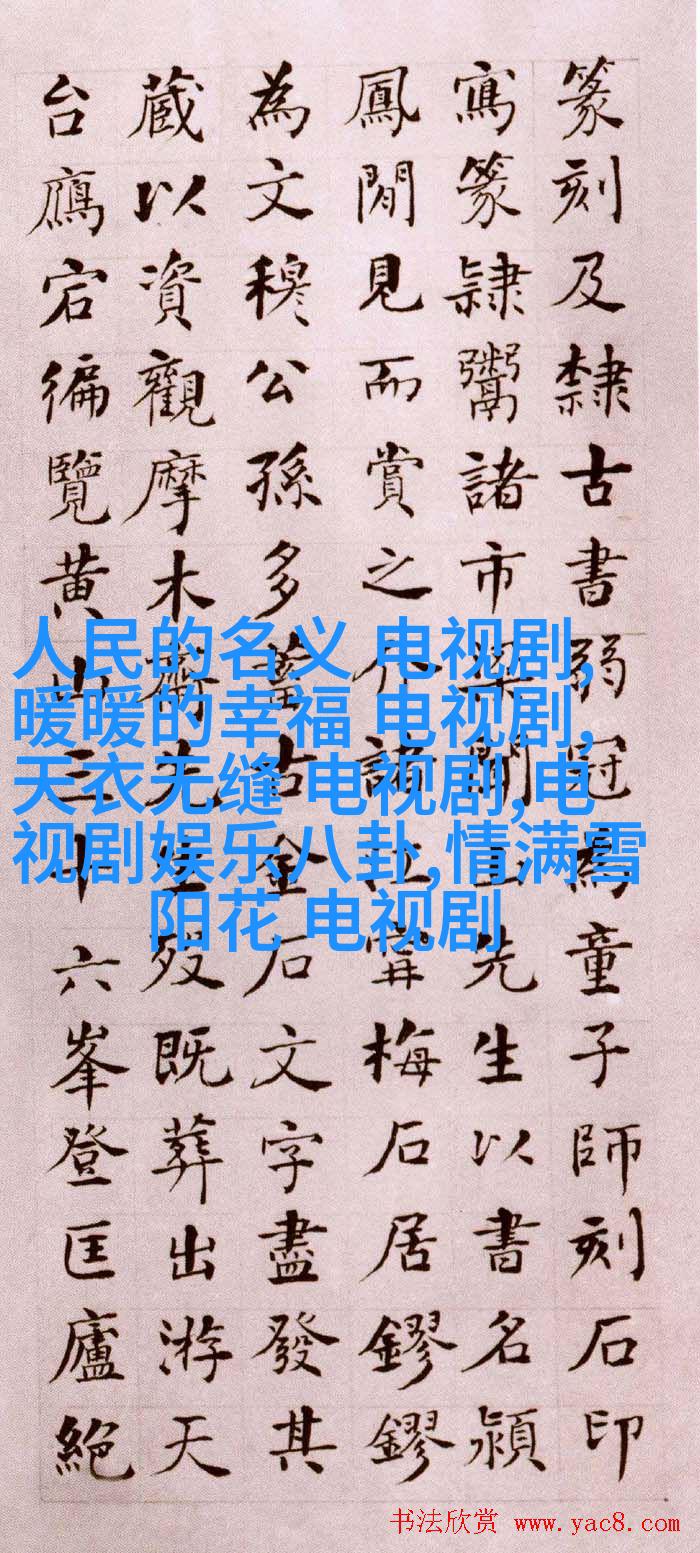 篆刻及隸古書弱冠為童子師刻石印
寫篆隸鬻諸市梁聞山先生以書名潁
鳳閒見而賞之介謁江寧梅石居鏐鏐
為文穆公孫多蓄古金石文字盡發其
藏以資觀摩木齋先生歿既葬出游天
台鴈宕徧覽黃山三十六峯登匡廬絕
人民的名义 电视剧,
暖暖的幸福 电视剧,
天衣无缝 电视剧,电
视剧娱乐八卦,情满雪
阳花 电视剧
书法欣赏 www.yac8.com